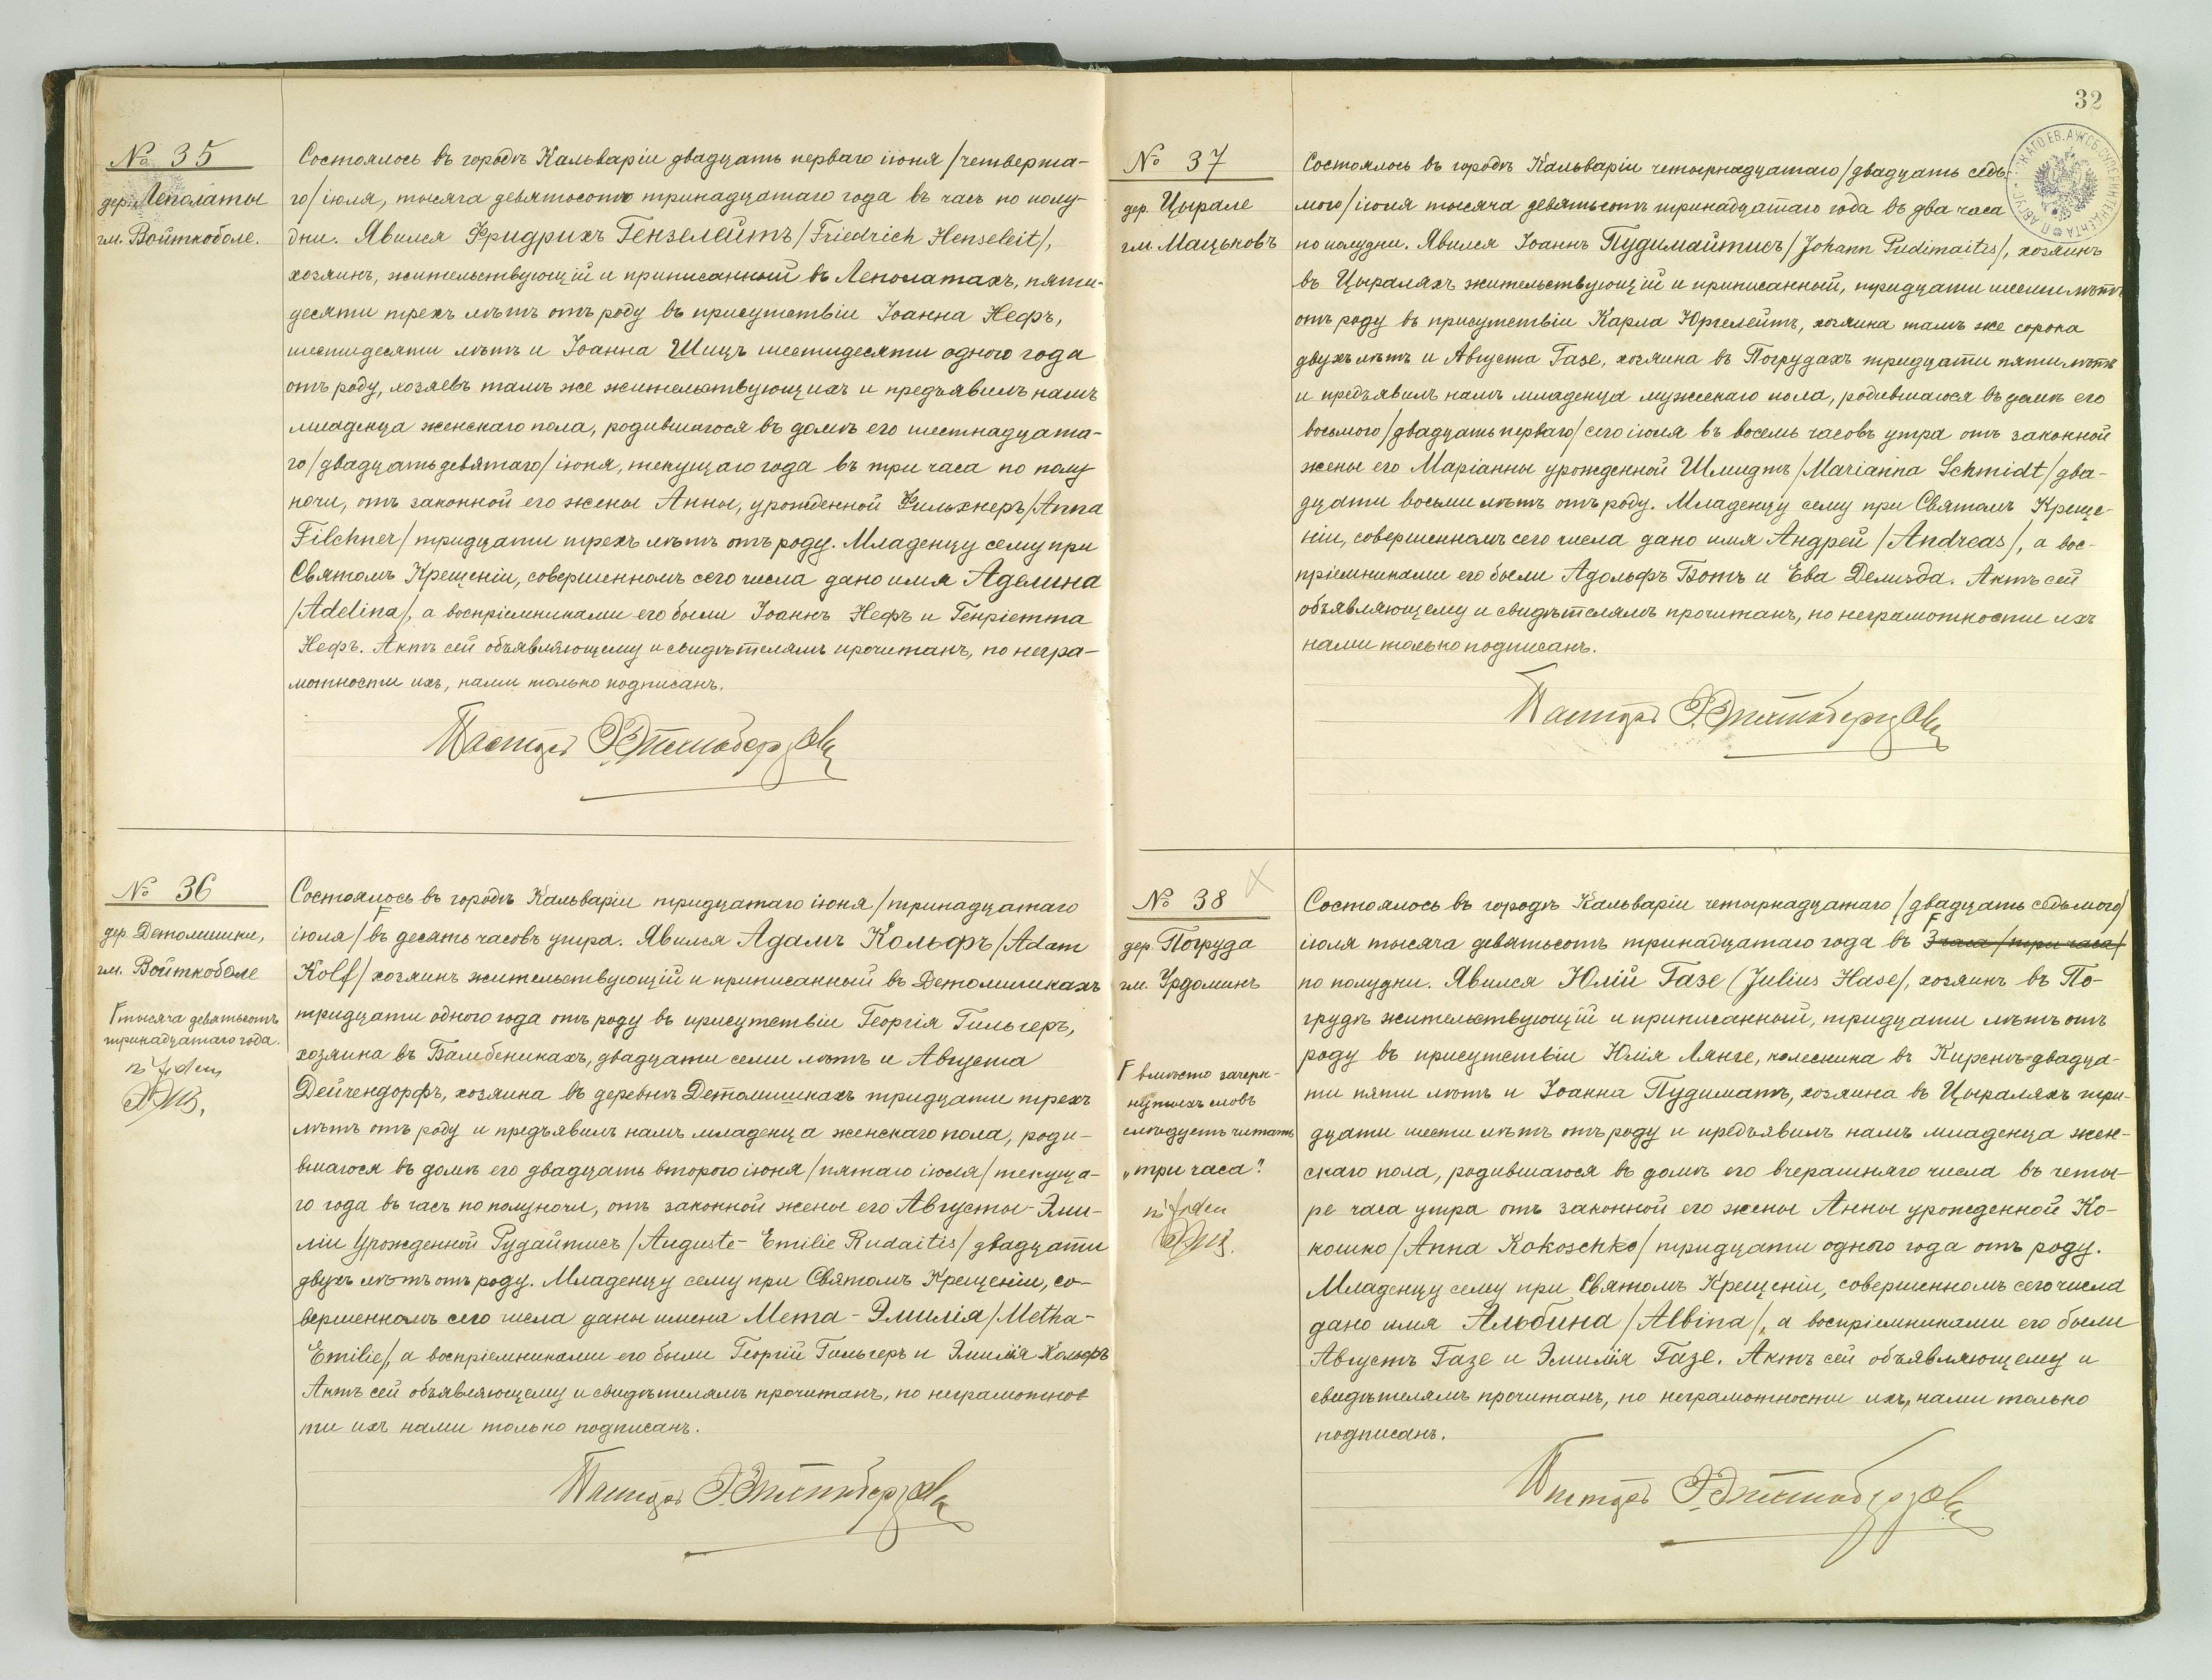 № 35
дер. Леполаты
гм. Войткоболе.
Состоялось въ городѣ Кальваріи двадцать перваго іюня /четверта-
го/ іюля, тысяча девятьсотъ тринадцатаго года въ часъ по полу-
дни. Явился Фридрихъ Гензелейтъ /Friedrich Henseleit/,
хозяинъ, жительствующій и приписанный въ Леполатахъ, пяти-
десяти трехъ лѣтъ отъ роду въ присутствіи Іоанна Нефъ,
шестидесяти лѣтъ и Іоанна Шицъ шестидесяти одного года
отъ роду, хозяевъ тамъ же жительствующихъ и предъявилъ намъ
младенца женскаго пола, родившагося въ домѣ его шестнадцата-
го /двадцать девятаго/ іюня, текущаго года въ три часа по полу
ночи, отъ законной его жены Анны, урожденной Фильхнеръ /Anna
Filchner/ тридцати трехъ лѣтъ отъ роду. Младенцу сему при
Святомъ Крещеніи, совершенномъ сего числа дано имя Аделина
/Adelina/, а воспріемниками его были Іоаннъ Нефъ и Генріетта
Нефъ. Актъ сей объявляющему и свидѣтелямъ прочитанъ, по негра-
мотности ихъ, нами только подписанъ.
Пасторъ
№ 36
дер. Детомишки,
гм. Войткоболе
Г тысяча девятьсотъ
тринадцатаго года.
Состоялось въ городѣ Кальваріи тридцатаго іюня /тринадцатаго
іюля/ Г въ десять часовъ утра. Явился Адамъ Кольфъ /Adam
Kolf/ хозяинъ жительствующій и приписанный въ Детомишкахъ
тридцати одного года отъ роду въ присутствіи Георгія Гильгеръ,
хозяина въ Бамбеникахъ, двадцати семи лѣтъ и Августа
Дейчендорфъ, хозяина въ деревнѣ Детомишкахъ тридцати трехъ
лѣтъ отъ роду и предъявилъ намъ младенца женскаго пола, роди-
вшагося въ домѣ его двадцать второго іюня /пятаго іюля/ текуща-
го года въ часъ по полуночи, отъ законной жены его Августы-Эми-
ліи Урожденной Рудайтисъ /Auguste-Emilie Rudaitis/ двадцати
двухъ лѣтъ отъ роду. Младенцу сему при Святомъ Крещеніи, со-
вершенномъ сего числа даны имена Мета-Эмилія /Metha-
Emilie/, а воспріемниками его были Георгій Гильгеръ и Эмилія Кольфъ
Актъ сей объявляющему и свидѣтелямъ прочитанъ, по неграмотнос
ти ихъ нами только подписанъ.
Пасторъ
32
№ 37
дер. Цырале
гм. Мацьковъ
Состоялось въ городѣ Кальваріи четырнадцатаго /двадцать седь-
мого/ іюля тысяча девятьсотъ тринадцатаго года въ два часа
по полудни. Явился Іоаннъ Пудимайтисъ /Johann Pudimaitis/, хозяинъ
въ Цыраляхъ жительствующій и приписанный, тридцати шести лѣтъ
отъ роду въ присутствіи Карла Юргелейтъ, хозяина тамъ же сорока
двухъ лѣтъ и Августа Газе, хозяина въ Погрудахъ тридцати пяти лѣтъ
и предъявилъ намъ младенца мужескаго пола, родившагося въ домѣ его
восьмого /двадцать перваго/ сего іюля въ восемь часовъ утра отъ законной
жены его Маріанны урожденной Шмидтъ /Marianna Schmidt/ два-
дцати восьми лѣтъ отъ роду. Младенцу сему при Святомъ Креще-
ніи, совершенномъ сего числа дано имя Андрей /Andreas/, а вос-
пріемниками его были Адольфъ Ботъ и Ева Демида. Актъ сей
объявляющему и свидѣтелямъ прочитанъ, по неграмотности ихъ
нами только подписанъ.
Пасторъ
№ 38
дер. Погруда
гм. Урдоминъ
Г вмѣсто зачерк-
нутыхъ словъ
слѣдуетъ читать
„три часа"
Состоялось въ городѣ Кальваріи четырнадцатаго /двадцать седьмого/
іюля тысяча девятьсотъ тринадцатаго года въ Г 3 часа /три часа/
по полудни. Явился Юлій Газе (Julius Hase/, хозяинъ въ По-
грудѣ жительствующій и приписанный, тридцати лѣтъ отъ
роду въ присутствіи Юлія Лянге, колесника въ Кирснѣ двадца-
ти пяти лѣтъ и Іоанна Пудиматъ, хозяина въ Цыраляхъ три-
дцати шести лѣтъ отъ роду и предъявилъ намъ младенца жен-
скаго пола, родившагося въ домѣ его вчерашняго числа въ четы-
ре часа утра отъ законной его жены Анны урожденной Ко-
кошко /Anna Kokoschko/ тридцати одного года отъ роду.
Младенцу сему при Святомъ Крещеніи, совершенномъ сего числа
дано имя Альбина /Albina/, а воспріемниками его были
Августъ Газе и Эмилія Газе. Актъ сей объявляющему и
свидѣтелямъ прочитанъ, по неграмотности ихъ, нами только
подписанъ.
Пасторъ